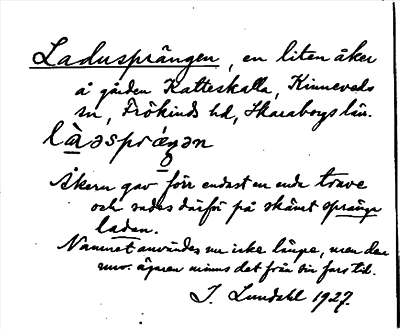 Ladusprängen, en liten åker
å gården Katteskalla, Kinneveds
sn, Frökinds hd, Skaraborgs län.
Åkern gav förr endast en enda trave
och sades därför på skämt spränga
ladan.
Namnet användes nu icke länge, men den
nuv. ägaren minns det från sin fars tid.
J. Lundahl 1927.